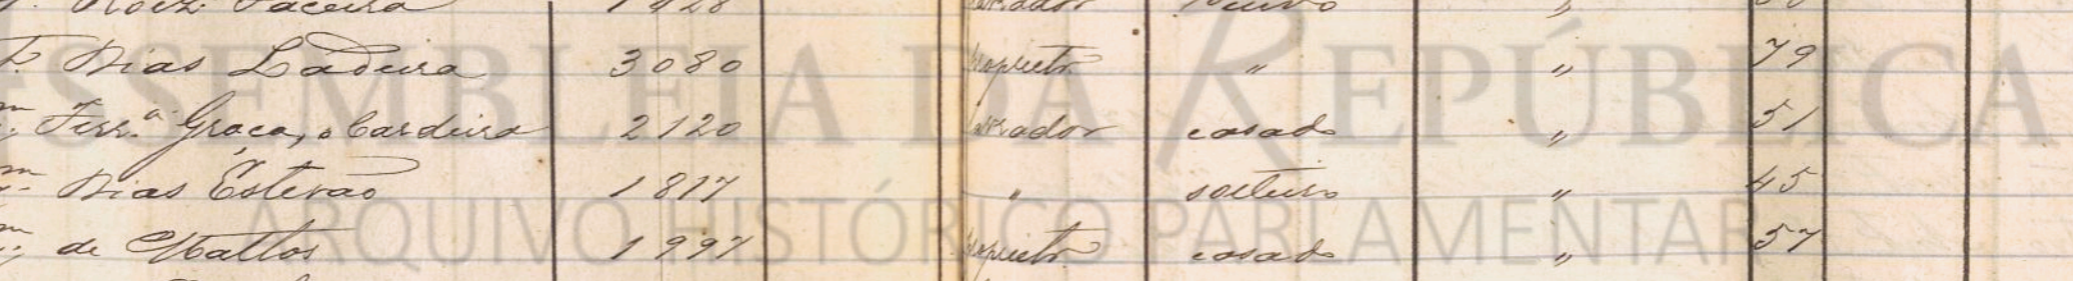 Dias Ladeira 3080 Propriet.º " " 79
Ferr.ª Graça, o Cardeira 2120 Lavrador casado " 51
Dias Estevão 1817 " solteiro " 45
de Mattos 1997 Propriet.º casado " 57
ASSEMBLEIA DA REPÚBLICA
ARQUIVO HISTÓRICO PARLAMENTAR